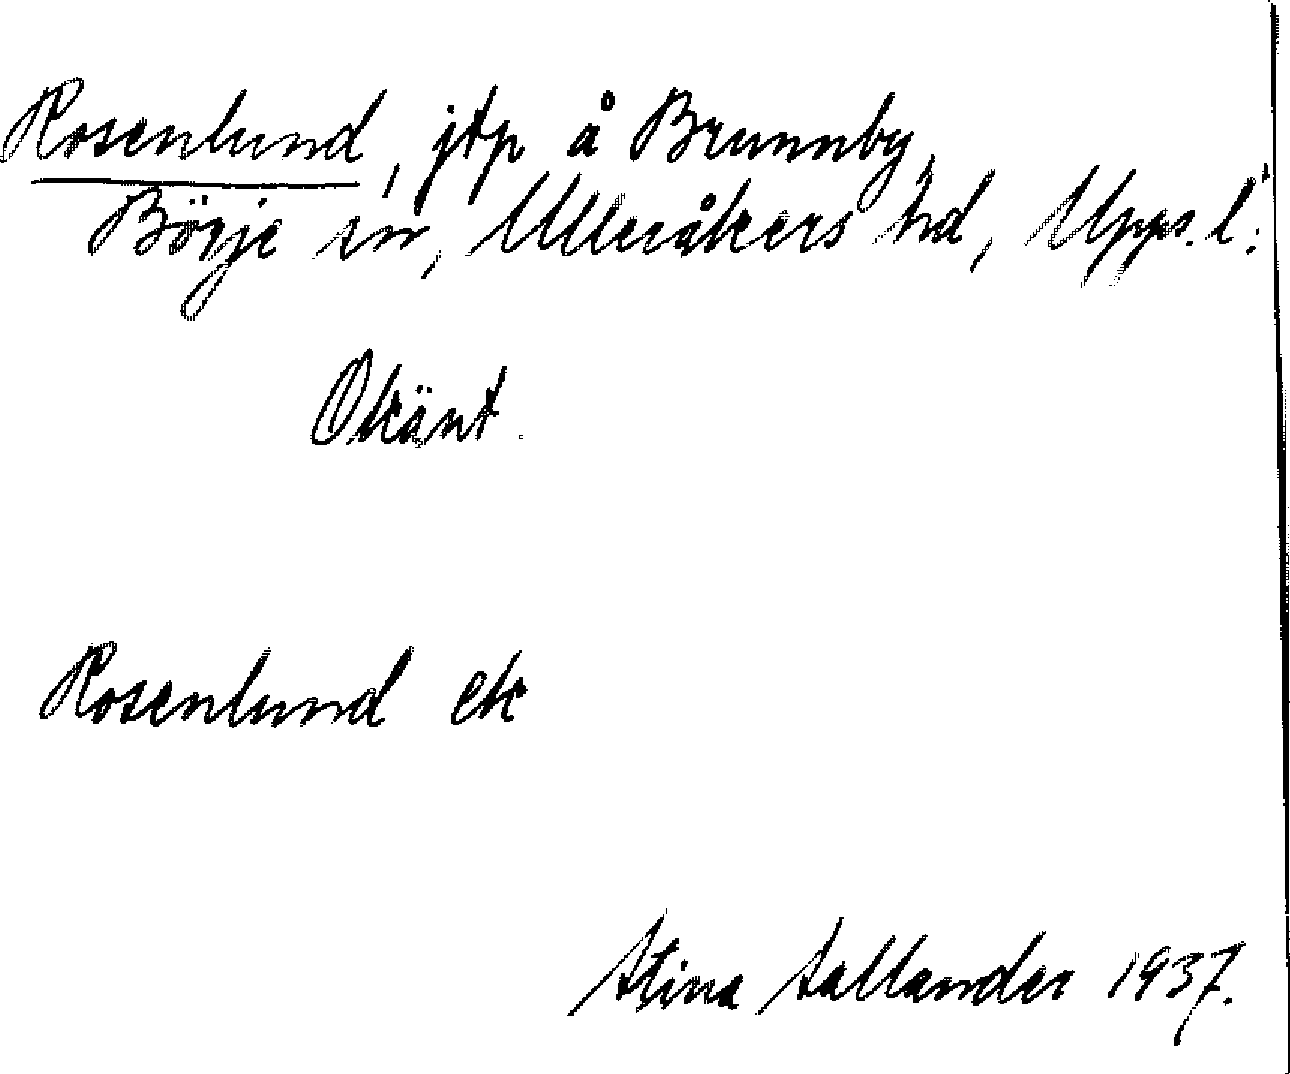 Rosenlund, jtp å Brunnby,
Börje sn, Ulleråkers hd, Upps. l.
Okänt.
Rosenlund ek
Stina Sallander 1937.